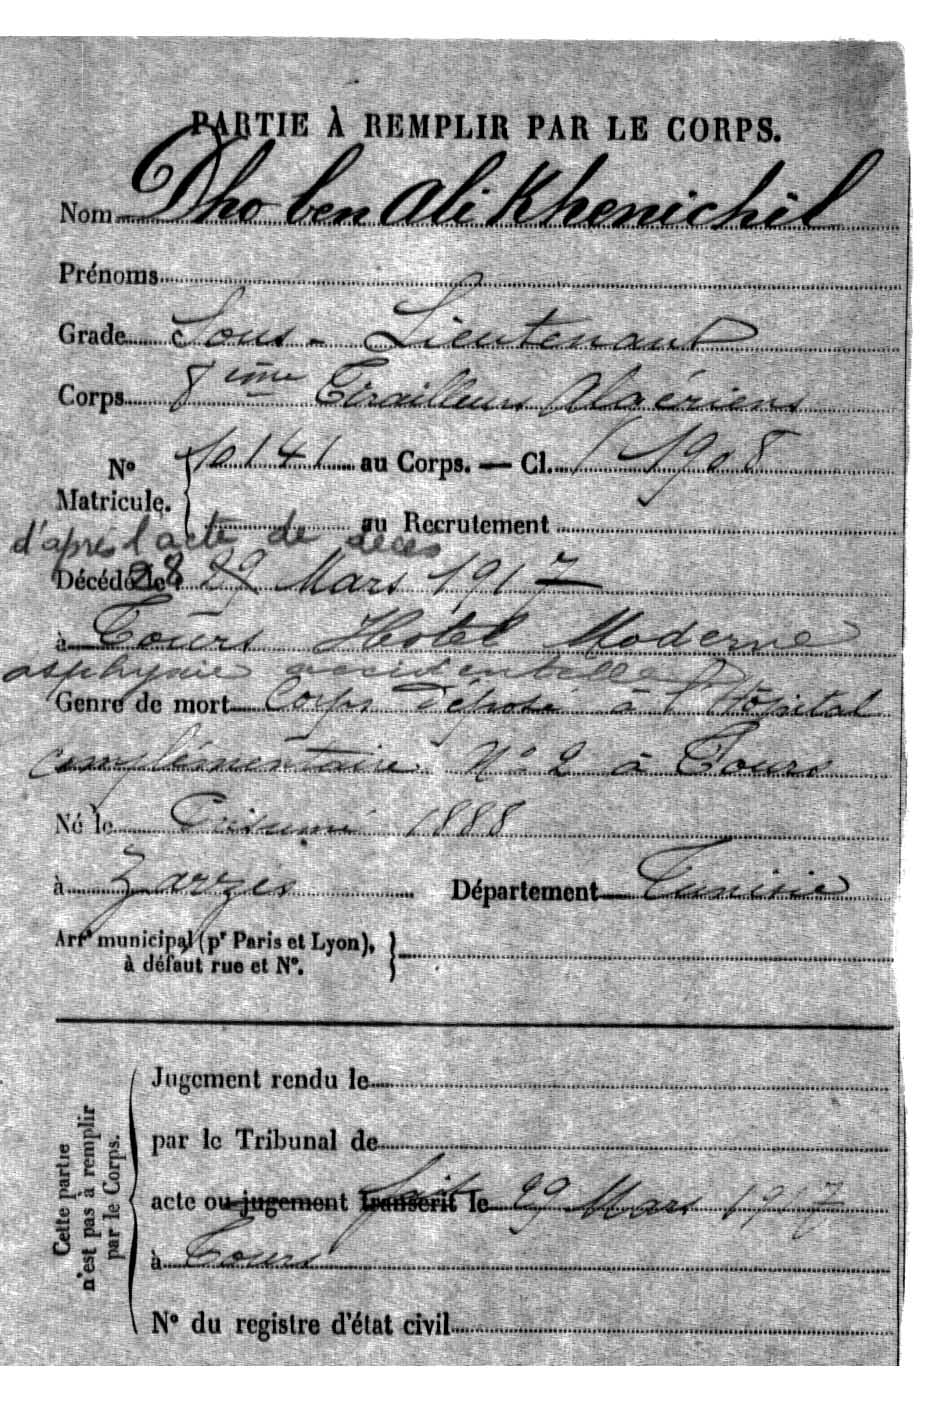 PARTIE À REMPLIR PAR LE CORPS.
Nom Dho ben Ali Khenichil
Prénoms
Grade Sous-Lieutenant
Corps 8ème Tirailleurs Algériens
N° Matricule. { 10141 au Corps. — Cl. 1908
au Recrutement
d'après l'acte de décès
Décédé le 28 29 Mars 1917
à Tours Hotel Moderne
asphyxie accidentelle
Genre de mort Corps déposé à l'Hôpital
complémentaire N° 2 à Tours
Né le Présumé 1888
à Zarzis Département Tunisie
Arrt municipal (pr Paris et Lyon), à défaut rue et N°. }
Cette partie n'est pas à remplir par le Corps.
Jugement rendu le
par le Tribunal de
acte ou jugement transcrit fait le 29 Mars 1917
à Tours
N° du registre d'état civil